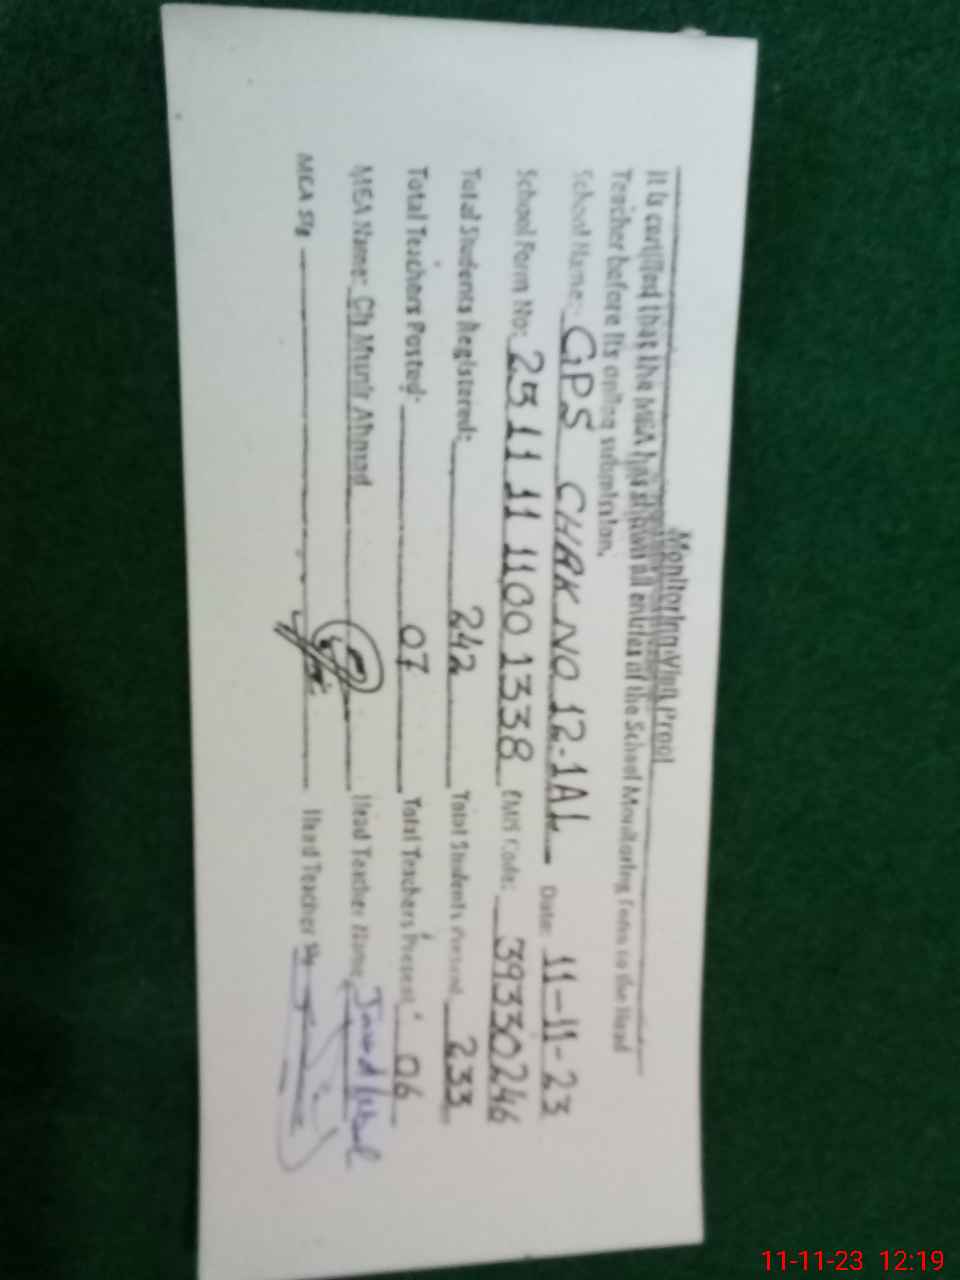 Monitoring Visit Proof
It is certified that the MEA has shown all entries of the School Monitoring Form to the Head
Teacher before its online submission.
School Name: GPS CHAK NO 12.1AL Date: 11-11-23
School Form No: 2511 11 1100 1338 EMIS Code: 39330246
Total Students Registered: 242 Total Students Present 233
Total Teachers Posted: 07 Total Teachers Present 06
MEA Name: Ch Munir Ahmad Head Teacher Name
MEA Sig Head Teacher Sig
11-11-23 12:19